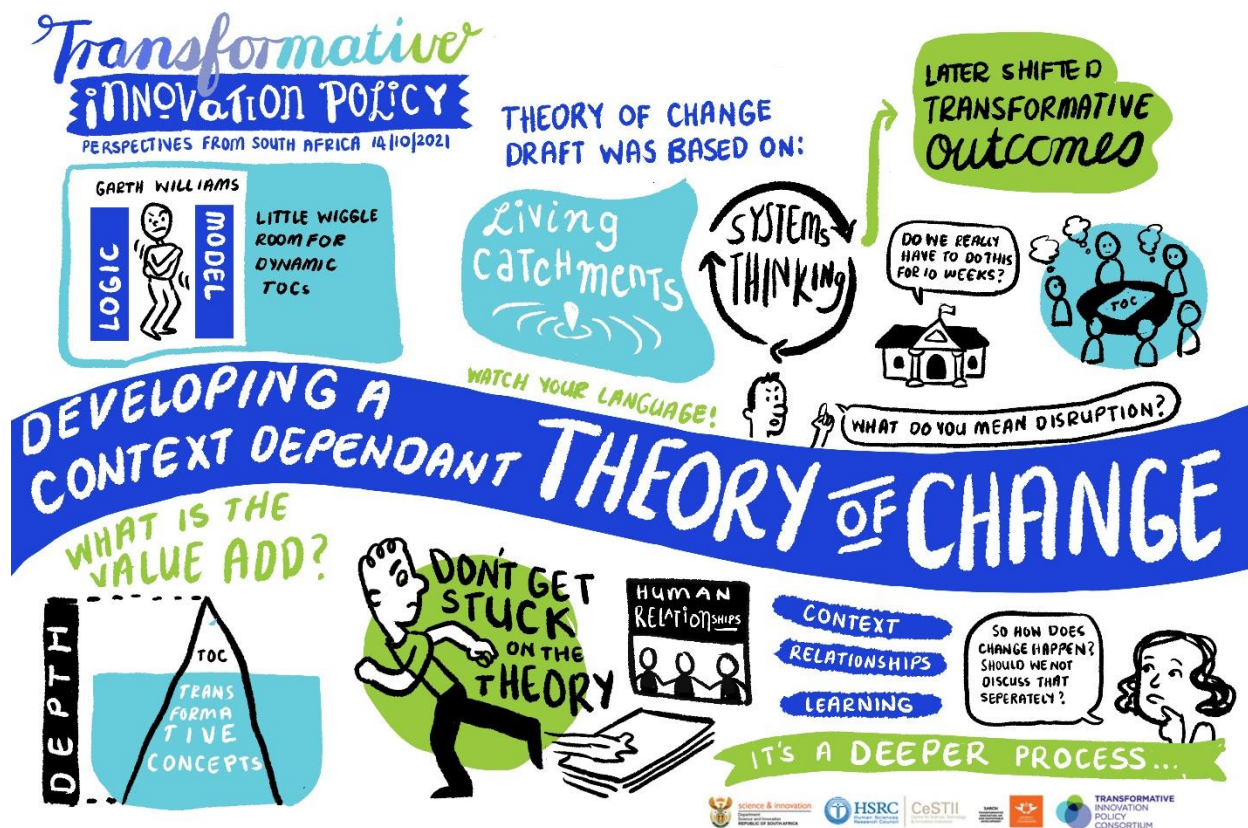 Transformative
INNOVATION POLICY
PERSPECTIVES FROM SOUTH AFRICA 14/10/2021
GARTH WILLIAMS
LOGIC
MODEL
LITTLE WIGGLE
ROOM FOR
DYNAMIC
TOCs
THEORY OF CHANGE
DRAFT WAS BASED ON:
LIVING
CATCHMENTS
SYSTEMS
THINKING
LATER SHIFTED
TRANSFORMATIVE
OUTCOMES
DO WE REALLY
HAVE TO DO THIS
FOR 10 WEEKS?
TOC
WATCH YOUR LANGUAGE!
WHAT DO YOU MEAN DISRUPTION?
DEVELOPING A
CONTEXT DEPENDANT
THEORY OF CHANGE
WHAT IS THE
VALUE ADD?
DEPTH
TOC
TRANS
FORMA
TIVE
CONCEPTS
DON'T GET
STUCK
ON THE
THEORY
HUMAN
RELATIONSHIPS
CONTEXT
RELATIONSHIPS
LEARNING
SO HOW DOES
CHANGE HAPPEN?
SHOULD WE NOT
DISCUSS THAT
SEPERATELY?
IT'S A DEEPER PROCESS...
science & innovation
Department
Science and Innovation
REPUBLIC OF SOUTH AFRICA
HSRC
Human Sciences
Research Council
CeSTII
TRANSFORMATIVE
INNOVATION
POLICY
CONSORTIUM